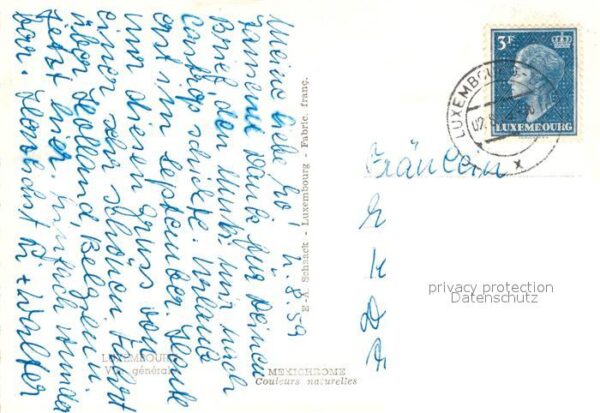 Meine liebe Evi! 4.8.59
Innigen Dank für Deinen
Brief den Mutti mir nach
schickte. Urlaub
erst im September. Heute
nur diesen Gruss von
einer sehr schönen Fahrt
über Holland, Belgien u.
jetzt hier. Einfach wunder
bar. Herzlichst Di + Walter
E. A. Schaack - Luxembourg - Fabric. franç.
LUXEMBOURG
Vue générale
MEXICHROME
Couleurs naturelles
3F
LUXEMBOURG
LUXEMBOURG
Fräulein
privacy protection
Datenschutz